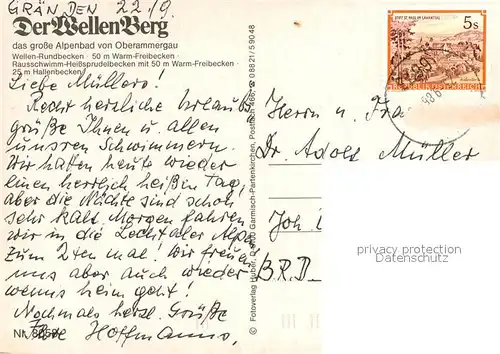 GRÄN DEN 22/9.
Der WellenBerg
das große Alpenbad von Oberammergau
Wellen-Rundbecken · 50 m Warm-Freibecken ·
Rausschwimm-Heißsprudelbecken mit 50 m Warm-Freibecken ·
25 m Hallenbecken
Liebe Müllers!
Recht herzliche Urlaubs
grüße Ihnen u. allen
unsren Schwimmern.
Wir hatten heute wieder
einen herrlich heißen Tag,
aber die Nächte sind schon
sehr kalt. Morgen fahren
wir in die Lechtaler Alpen
zum 2ten mal! Wir freuen
uns aber auch wieder
wenns heim geht!
Nochmals herzl. Grüße
Ihre Hoffmanns,
Nr.
© Fotoverlag Huber, Garmisch-Partenkirchen, Postfach 466, ☎ 08821/59048
STIFT ST. PAUL IM LAVANTTAL
5s
REPUBLIK ÖSTERREICH
Herrn u. Fra
Dr. Adolf Müller
Joh
B.R.D.
protected by copyright
(watermark)